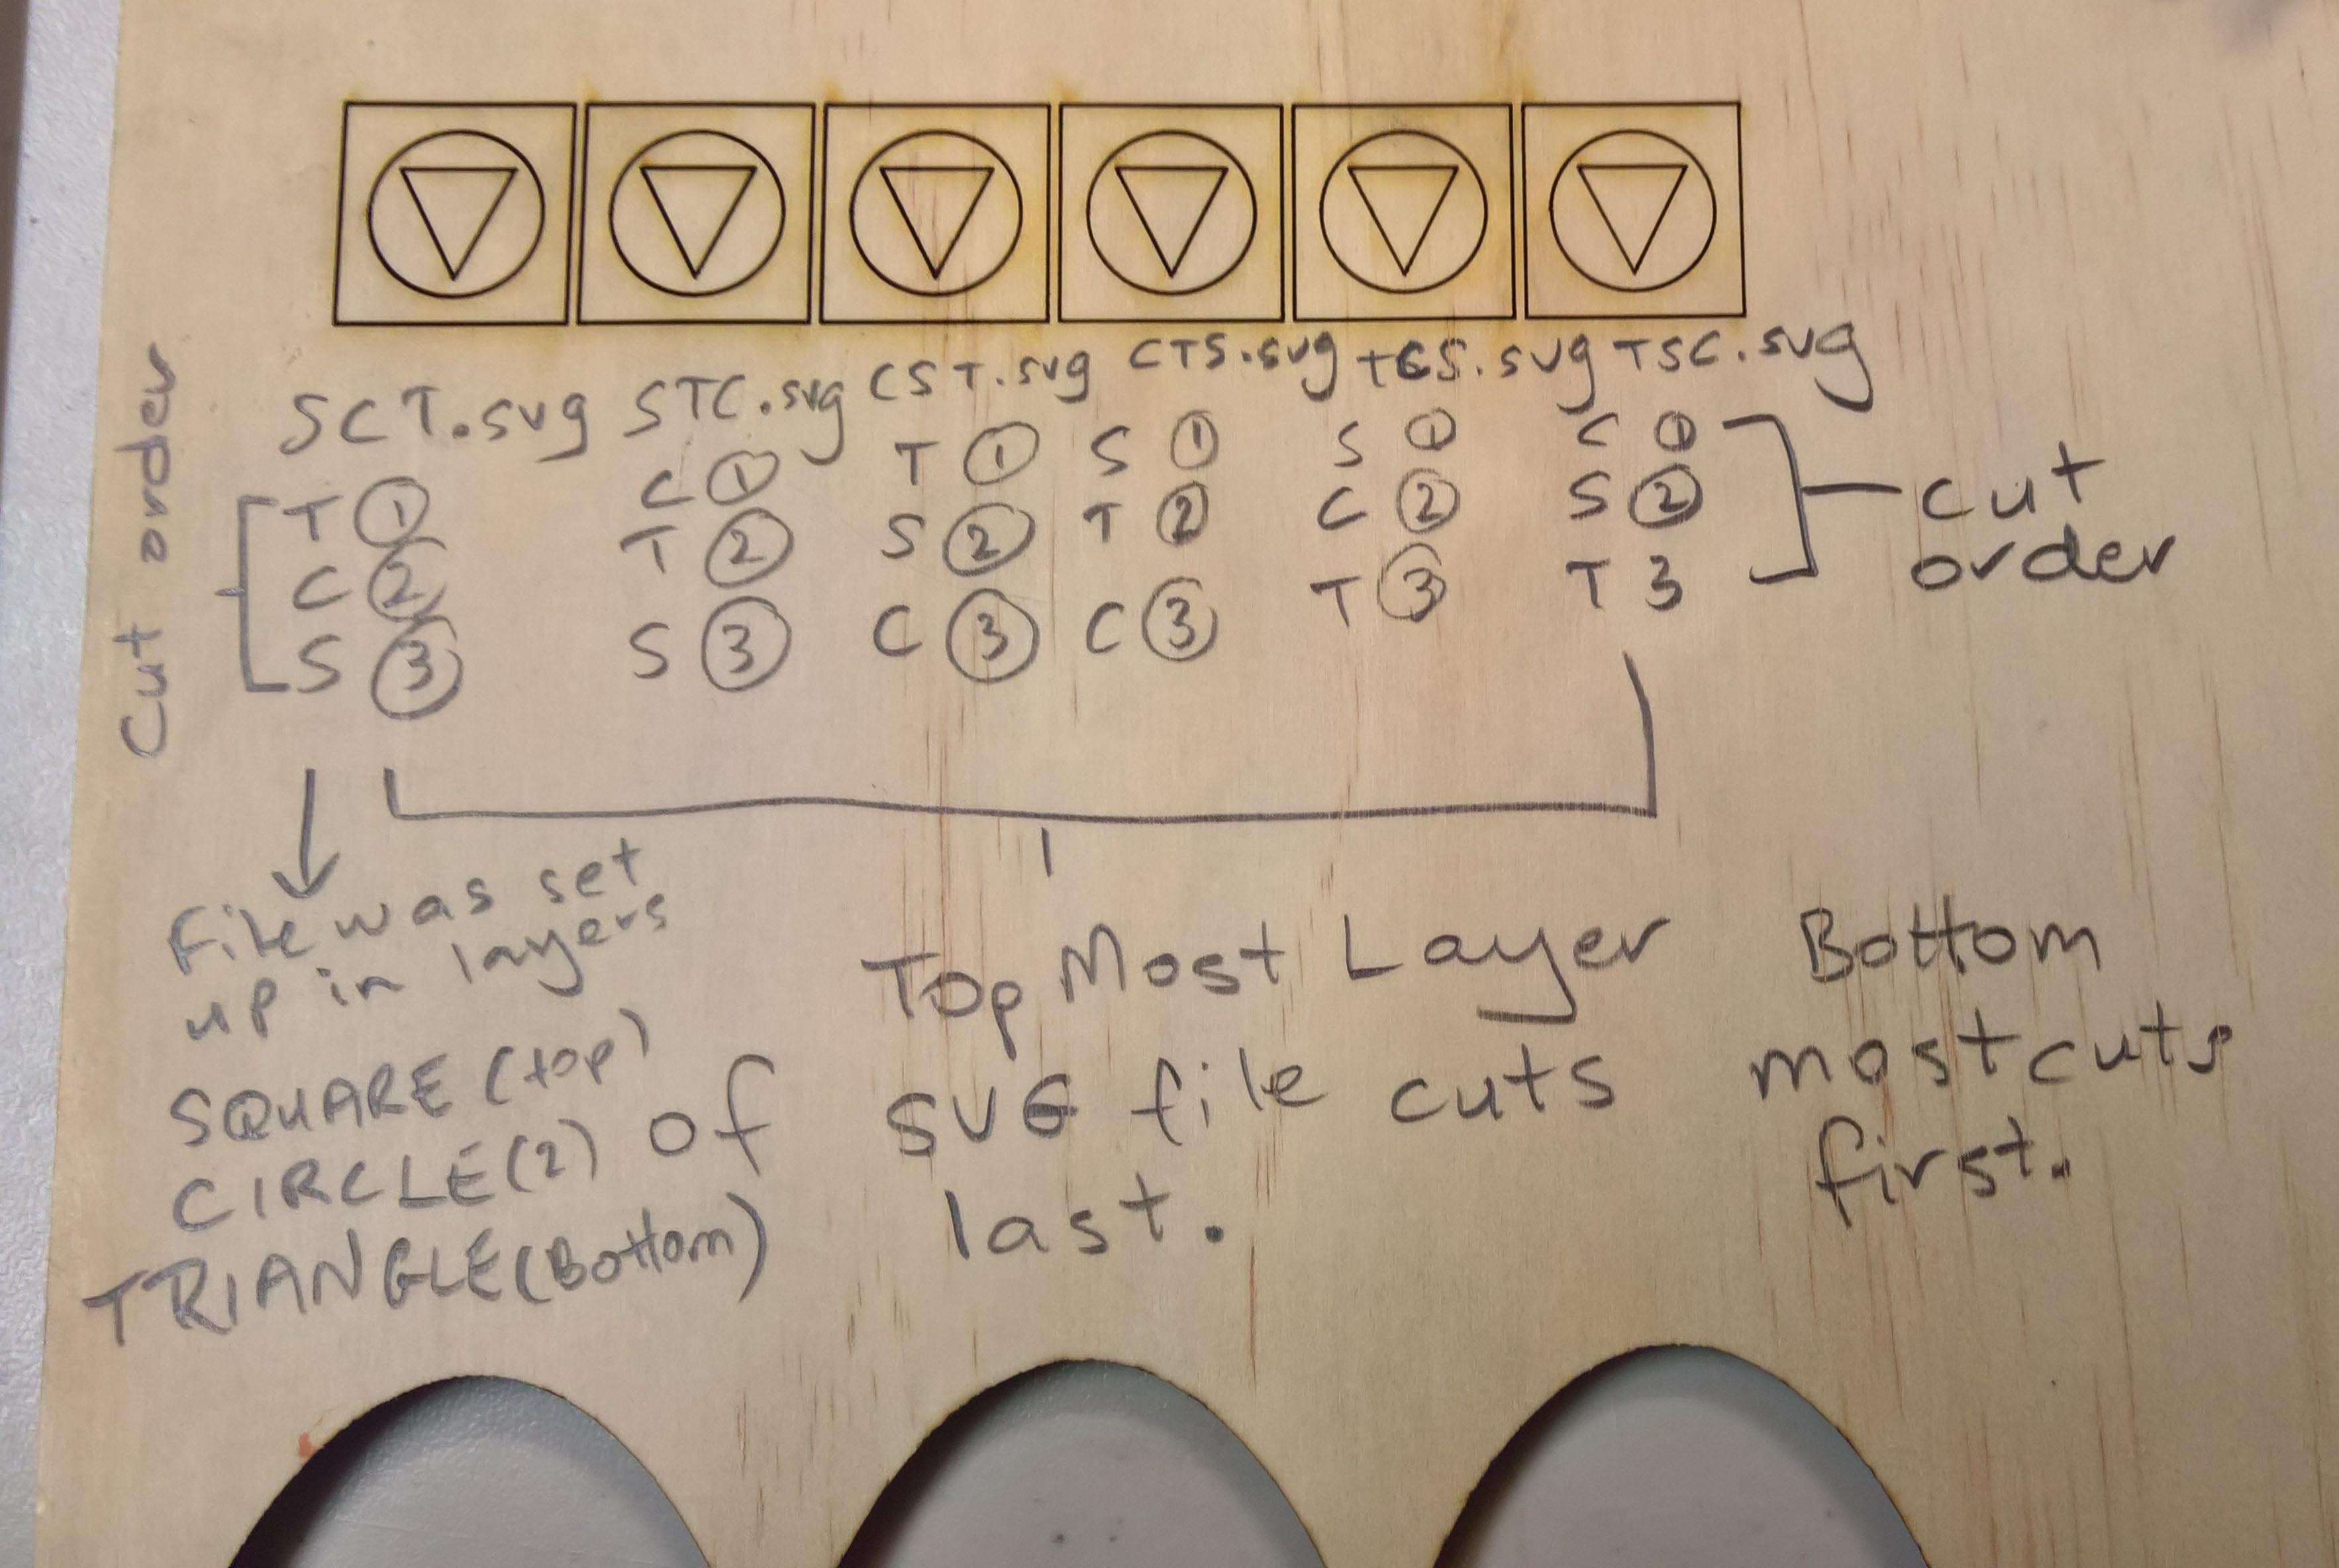 SCT.svg STC.svg CST.svg CTS.svg TCS.svg TSC.svg
T ① C ① T ① S ① S ① C ①
C ② T ② S ② T ② C ② S ②
S ③ S ③ C ③ C ③ T ③ T 3
Cut order
cut
order
File was set
up in layers
SQUARE (top)
CIRCLE (2)
TRIANGLE (Bottom)
Top Most Layer
of SVG file cuts
last.
Bottom
most cuts
first.